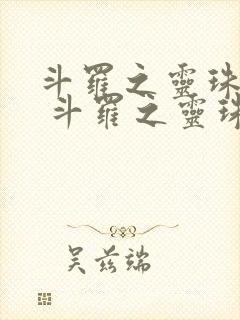 斗羅之靈珠
斗羅之靈珠
吴兹端